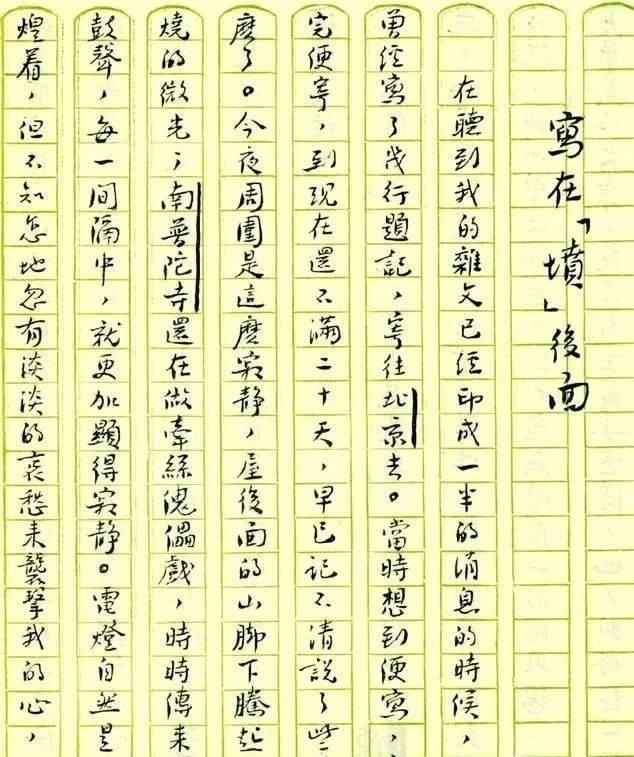 寫在「墳」後面
在聽到我的雜文已經印成一半的消息的時候，
曾經寫了幾行題記，寄往北京去。當時想到便寫，
完便寄，到現在還不滿二十天，早已記不清說了些
麽了。今夜周圍是這麽寂靜，屋後面的山脚下騰起
燒的微光；南普陀寺還在做牽絲傀儡戲，時時傳來
鼓聲，每一間隔中，就更加顯得寂靜。電燈自然是
煌着，但不知怎地忽有淡淡的哀愁來襲擊我的心，